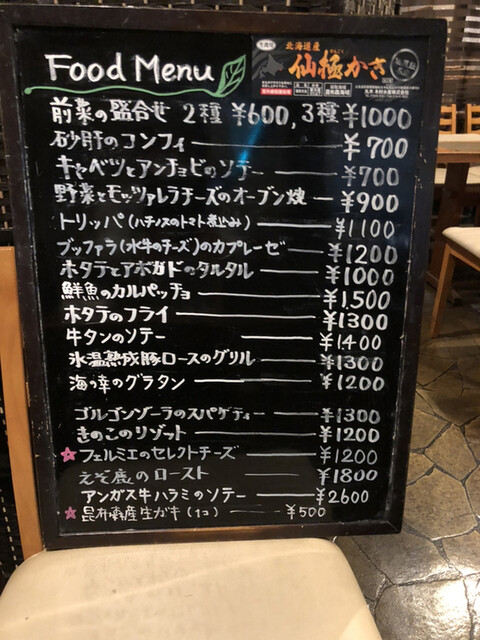 Food Menu
北海道産
仙極かき
前菜の盛合せ 2種 ¥600, 3種 ¥1000
砂肝のコンフィ ¥700
キャベツとアンチョビのソテー ¥700
野菜とモッツァレラチーズのオーブン焼 ¥900
トリッパ(ハチノスのトマト煮込み) ¥1100
ブッファラ(水牛のチーズ)のカプレーゼ ¥1200
ホタテとアボガドのタルタル ¥1000
鮮魚のカルパッチョ ¥1,500
ホタテのフライ ¥1300
牛タンのソテー ¥1400
氷温熟成豚ロースのグリル ¥1300
海の幸のグラタン ¥1200
ゴルゴンゾーラのスパゲティー ¥1300
きのこのリゾット ¥1200
フェルミエのセレクトチーズ ¥1200
えぞ鹿のロースト ¥1800
アンガス牛ハラミのソテー ¥2600
昆布森産生ガキ(1コ) ¥500